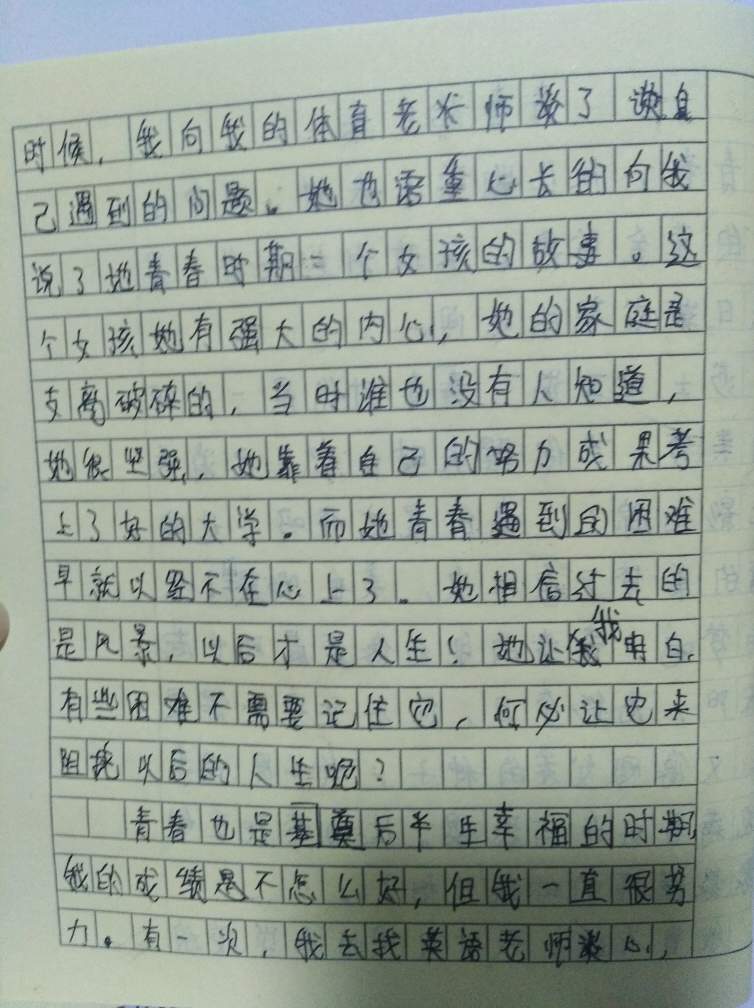 时候，我向我的体育老师谈了谈自
己遇到的问题。她也语重心长的向我
说了她青春时期一个女孩的故事。这
个女孩她有强大的内心，她的家庭是
支离破碎的，当时谁也没有人知道，
她很坚强，她靠着自己的努力成果考
上了好的大学。而她青春遇到的困难
早就以经不在心上了。她相信过去的
是风景，以后才是人生！她让我明白，
有些困难不需要记住它，何必让它来
阻挠以后的人生呢？
青春也是基奠后半生幸福的时期，
我的成绩是不怎么好，但我一直很努
力。有一次，我去找英语老师谈心，